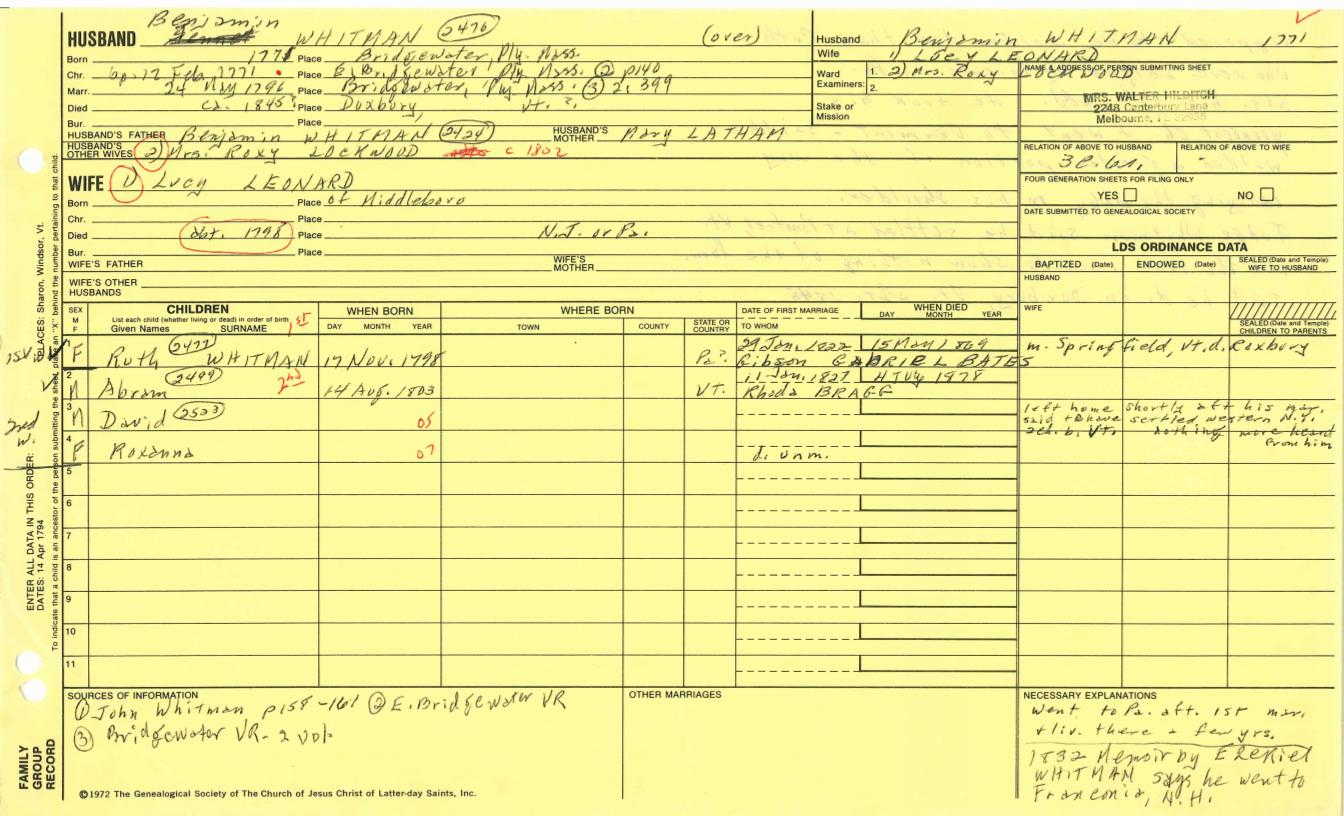 Benjamin
HUSBAND WHITMAN 2476 (over)
Born 1771 Place Bridgewater, Ply. Mass.
Chr. bp. 12 Feb. 1771 Place E. Bridgewater, Ply. Mass. ② p140
Marr. 24 May 1796 Place Bridgewater, Ply Mass. ③ 2, 399
Died ca. 1845? Place Duxbury, Vt. ?
Bur. Place
Husband Benjamin WHITMAN 1771
Wife 1) Lucy LEONARD
Ward Examiners: 1. 2) Mrs. Roxy LOCKWOOD
2.
Stake or Mission
NAME & ADDRESS OF PERSON SUBMITTING SHEET
MRS. WALTER HILDITCH
2248 Canterbury Lane
Melbourne,
HUSBAND'S FATHER Benjamin WHITMAN 2424 HUSBAND'S MOTHER Mary LATHAM
HUSBAND'S OTHER WIVES 2) Mrs. Roxy LOCKWOOD c 1802
RELATION OF ABOVE TO HUSBAND RELATION OF ABOVE TO WIFE
WIFE 1) Lucy LEONARD
Born Place of Middleboro
Chr. Place
Died abt. 1798 Place N.J. or Pa.
Bur. Place
WIFE'S FATHER WIFE'S MOTHER
WIFE'S OTHER HUSBANDS
FOUR GENERATION SHEETS FOR FILING ONLY
YES NO
DATE SUBMITTED TO GENEALOGICAL SOCIETY
LDS ORDINANCE DATA
BAPTIZED (Date) ENDOWED (Date) SEALED (Date and Temple) WIFE TO HUSBAND
HUSBAND
WIFE
SEALED (Date and Temple) CHILDREN TO PARENTS
SEX M F CHILDREN WHEN BORN WHERE BORN DATE OF FIRST MARRIAGE WHEN DIED
List each child (whether living or dead) in order of birth
Given Names SURNAME 1st DAY MONTH YEAR TOWN COUNTY STATE OR COUNTRY TO WHOM DAY MONTH YEAR
1 F Ruth 2477 WHITMAN 17 Nov. 1798 Pa? 29 Jan. 1822 15 May 1869 m. Springfield, Vt. d. Roxbury
Gibson GABRIEL BATES
2 M Abram 2499 2nd 14 Aug. 1803 Vt. 11 Jan. 1827 4 July 1878
Rhoda BRAGG
3 M David 2523 05 left home shortly aft his mar.
said to have settled western N.Y.
nothing more heard
from him
4 F Roxanna 07 d. unm.
5
6
7
8
9
10
11
2nd
w.
SOURCES OF INFORMATION
① John Whitman p158-161 ② E. Bridgewater VR
③ Bridgewater VR- 2 vol.
OTHER MARRIAGES
NECESSARY EXPLANATIONS
went to Pa. aft. 1st mar.
+ liv. there a few yrs.
1832 Memoir by EZEKIEL
WHITMAN says he went to
Franconia, N.H.
©1972 The Genealogical Society of The Church of Jesus Christ of Latter-day Saints, Inc.
FAMILY
GROUP
RECORD
ENTER ALL DATA IN THIS ORDER:
DATES: 14 Apr 1794
PLACES: Sharon, Windsor, Vt.
To indicate that a child is an ancestor of the person submitting the sheet, place an "X" behind the number pertaining to that child.